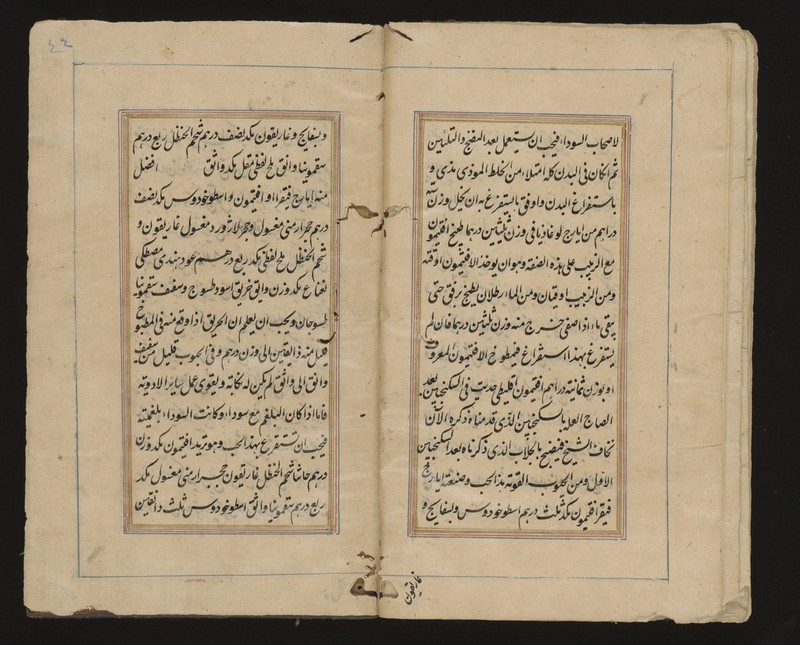 لاصحاب السوداء فيجب ان يستعمل بعد النضج والتليين
ثم ان كان فى البدن كله امتلاء من الخلط الموذى بدى و
باستفراغ البدن واوفق ما يستفرغ به ان يخل وزن
دراهم من ايارج لوغاذيا فى وزن ثلثين درهما طبيخ افتيمون
مع الزبيب على هذه الصفة وهو ان يوخذ الافتيمون اوقية
ومن الزبيب اوقيتان ومن الماء رطلان يطبخ برفق حتى
يبقى ماء اذا صفى خرج منه وزن ثلثين درهما فان لم
يستفرغ بهذا استفراغ فبمطبوخ الافتيمون المعروف
او بوزن ثمانية دراهم افتيمون اقليطى حديث فى السكنجبين بعد
اصلاح العلة بالسكنجبين الذى قدمناه ذكره الا ان
تخاف التشنج فينضج بالجلاب الذى ذكرناه وبعد السكنجبين
الاول ومن الحبوب القوية هذا الحب وصنعته ايارج
فيقرا افتيمون مكد ثلث درهم اسطوخودوس وبسفايج و
غاريقون
٤٢
وبسفايج وغاريقون مكد نصف درهم شحم الحنظل ربع درهم
سقمونيا دانق ملح نفطى مقل مكد دانق افضل
منه ايارج فيقرا وافتيمون واسطوخودوس مكد نصف
درهم حجر ارمنى مغسول وحجر لازورد مغسول غاريقون و
شحم الحنظل ملح نفطى مكد ربع درهم عود هندى مصطكى
نعناع مكد وزن دانق خربق اسود طسوج ونصف سقمونيا
طسوجان ويجب ان يعلم ان الخربق اذا وقع منه فى المطبوخ
قليل منه ذا نقين الى وزن درهم وفى الحبوب قليل من نصف
دانق الى دانق لم يكن له نكاية ويقوى عمل ساير الادوية
فاما اذا كان البلغم مع سوداء وكانت السوداء بلغمية
فيجب ان تستفرغ بهذا الحب وهو تربد افتيمون مكد وزن
درهم حاشا شحم الحنظل غاريقون حجر ارمنى مغسول مكد
ربع درهم سقمونيا دانق اسطوخودوس ثلث دانقين